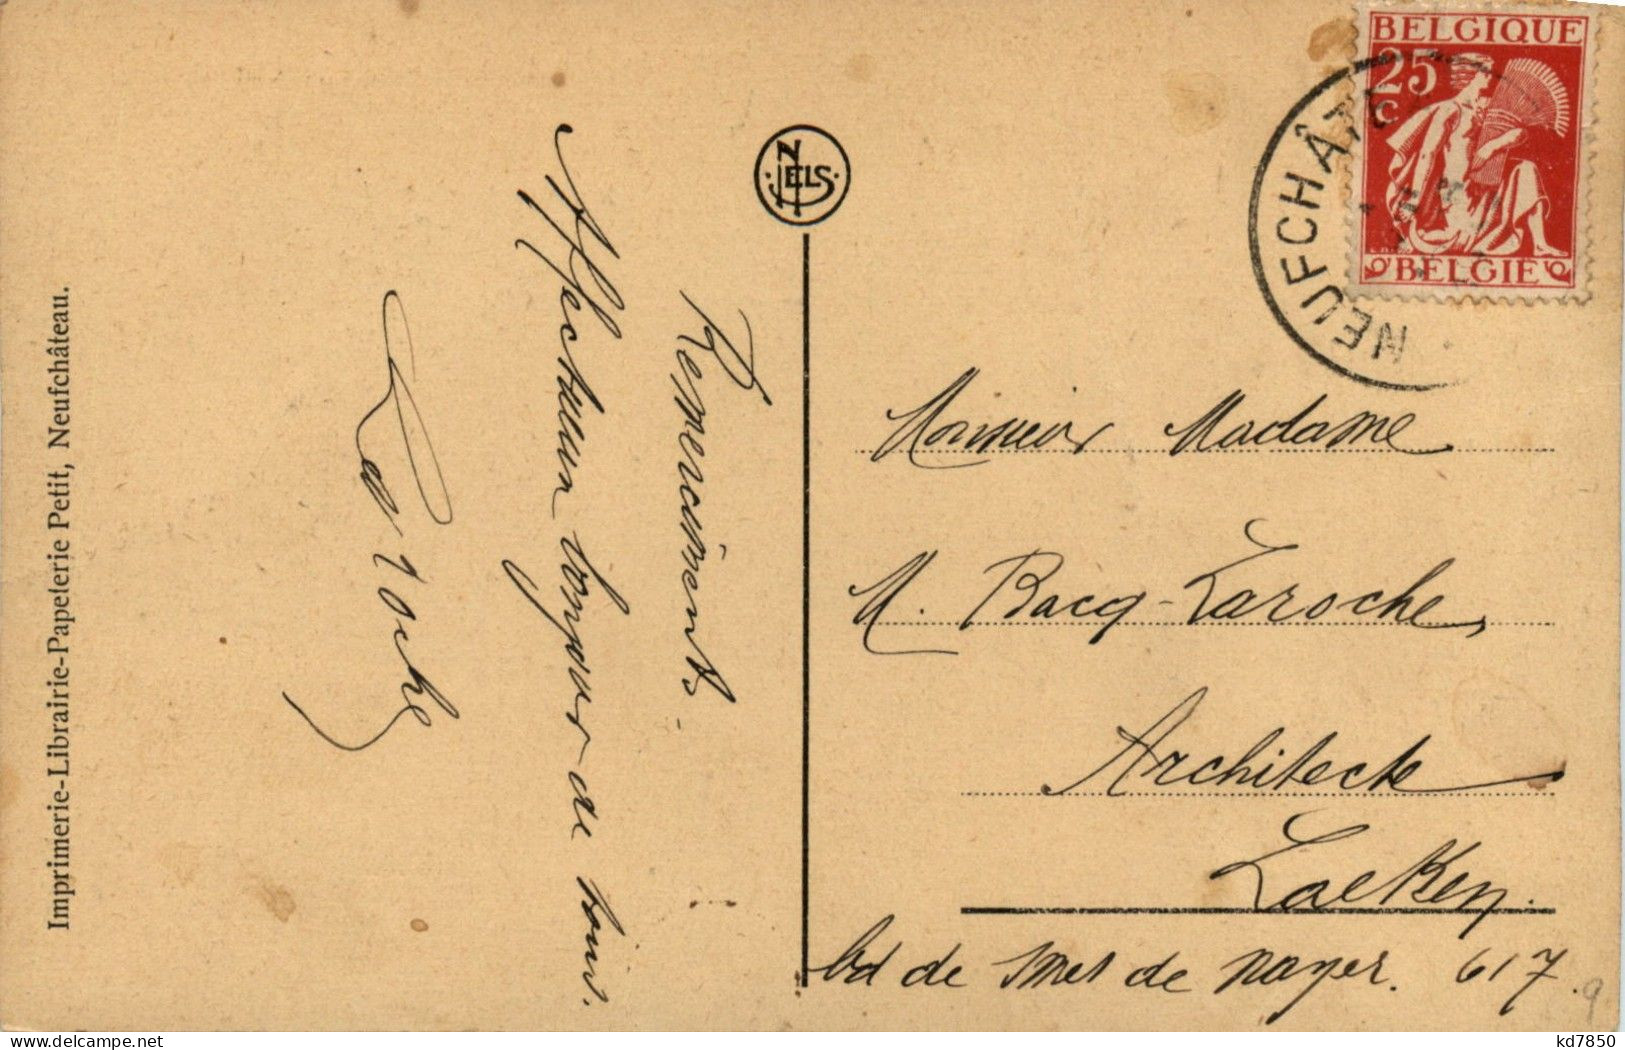 Imprimerie-Librairie-Papelerie Petit, Neufchâteau.
Remerciments.
Affectueux bonjour de nous.
Laroche
NELS
BELGIQUE
25
C
BELGIE
NEUFCHÂTE
Monsieur Madame
M. Bacq-Laroche,
Architecte
Laeken.
bd de Smet de Nayer. 617.
9
kd7850